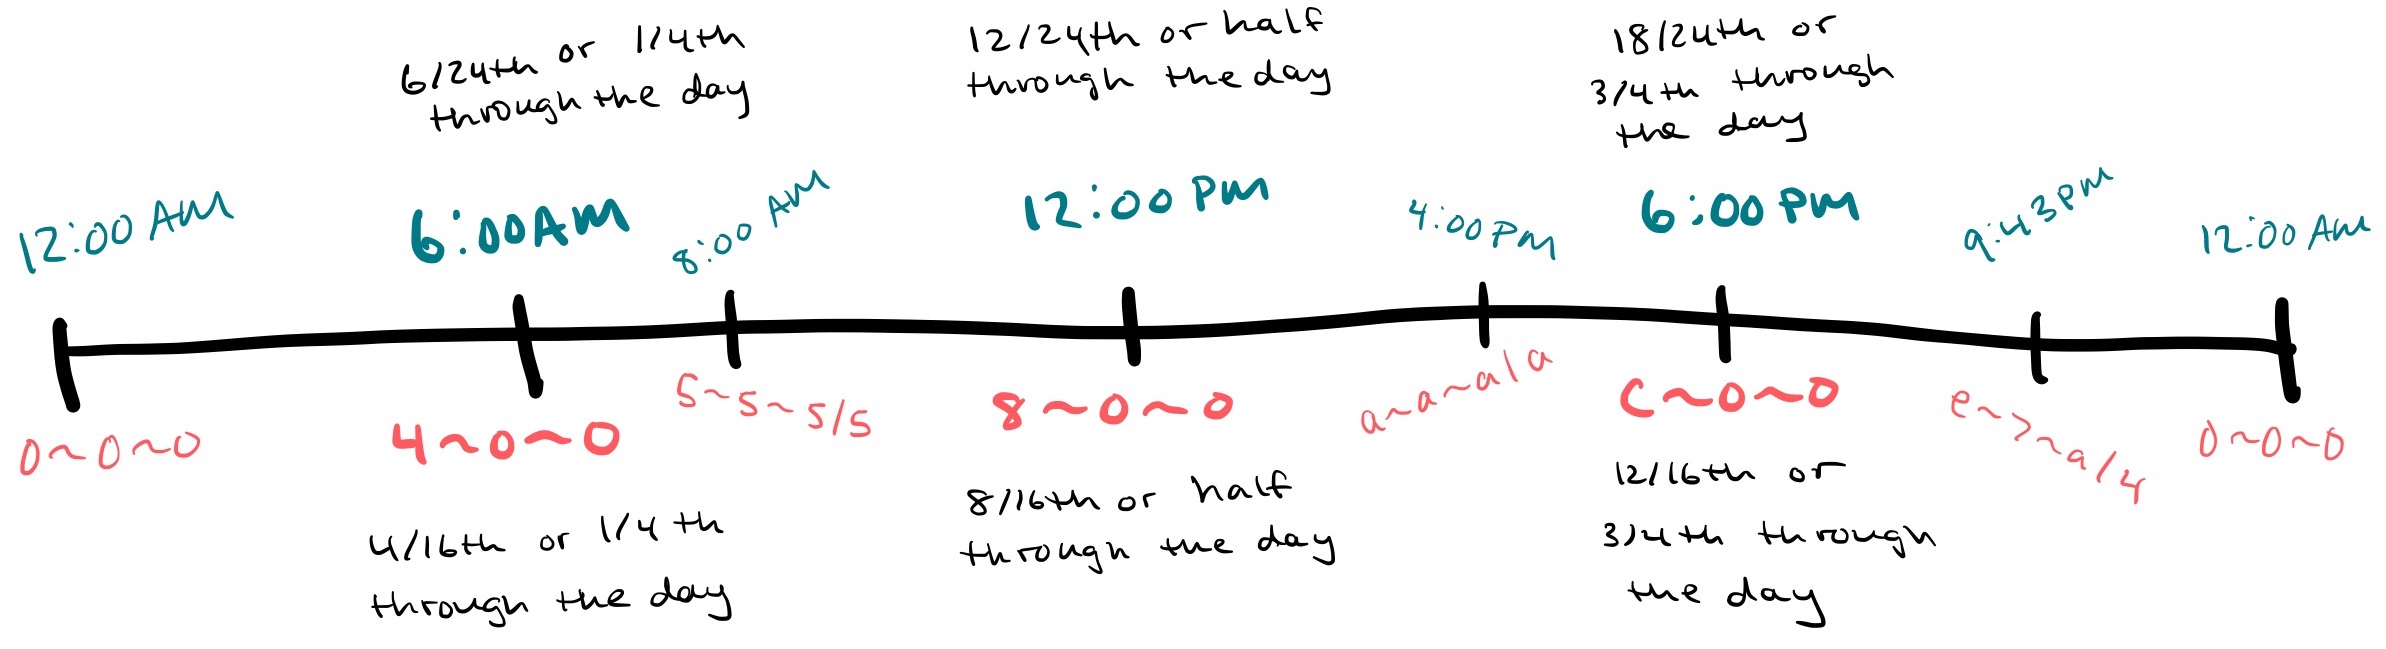 6/24th or 1/4th
through the day
12/24th or half
through the day
18/24th or
3/4th through
the day
12:00 AM
6:00 AM
8:00 AM
12:00 PM
4:00 PM
6:00 PM
9:43 PM
12:00 AM
0~0~0
4~0~0
5~5~5/5
8~0~0
a~a~a/a
c~0~0
e~>~a/4
0~0~0
4/16th or 1/4th
through the day
8/16th or half
through the day
12/16th or
3/4th through
the day